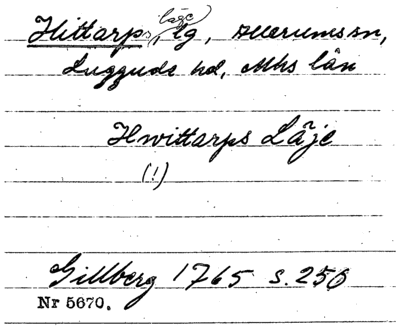 Hittarps läge, lg, Allerums sn,
Luggude hd, Mhs län
Hwittarps Läje
(!)
Gillberg 1765 s. 256
Nr 5670.